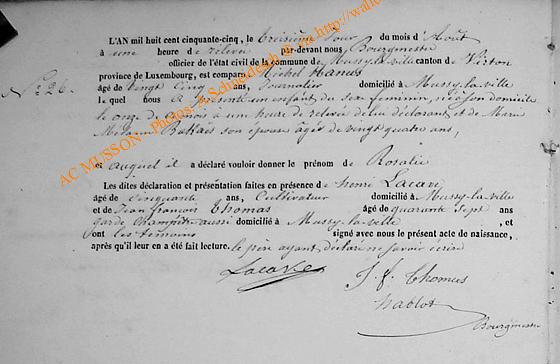 L'AN mil huit cent cinquante-cinq, le treizième jour du mois d'Août
à une heure de relevée par-devant nous, Bourgmestre
officier de l'état civil de la commune de Mussy-la-ville canton de Virton
province de Luxembourg, est comparu Michel Hanus
âgé de vingt cinq ans, Journalier domicilié à Mussy-la-ville
lequel nous a présenté un enfant du sexe féminin, né à son domicile
le onze de ce mois à une heure de relevée de lui déclarant et de Marie
son épouse âgée de vingt quatre ans,
et auquel il a déclaré vouloir donner le prénom de Rosalie
Les dites déclaration et présentation faites en présence de henri Lacave
âgé de cinquante ans, Cultivateur domicilié à Mussy-la-ville
et de Jean françois Thomas âgé de quarante sept ans
garde champêtre aussi domicilié à Mussy-la-ville, et
ont les témoins signé avec nous le présent acte de naissance,
après qu'il leur en a été fait lecture. le père ayant déclaré ne savoir écrire
Lacave
J. f. Thomas
Nablot
Bourgmestre
N° 26.
AC MUSSON - Photos: A. Schneider